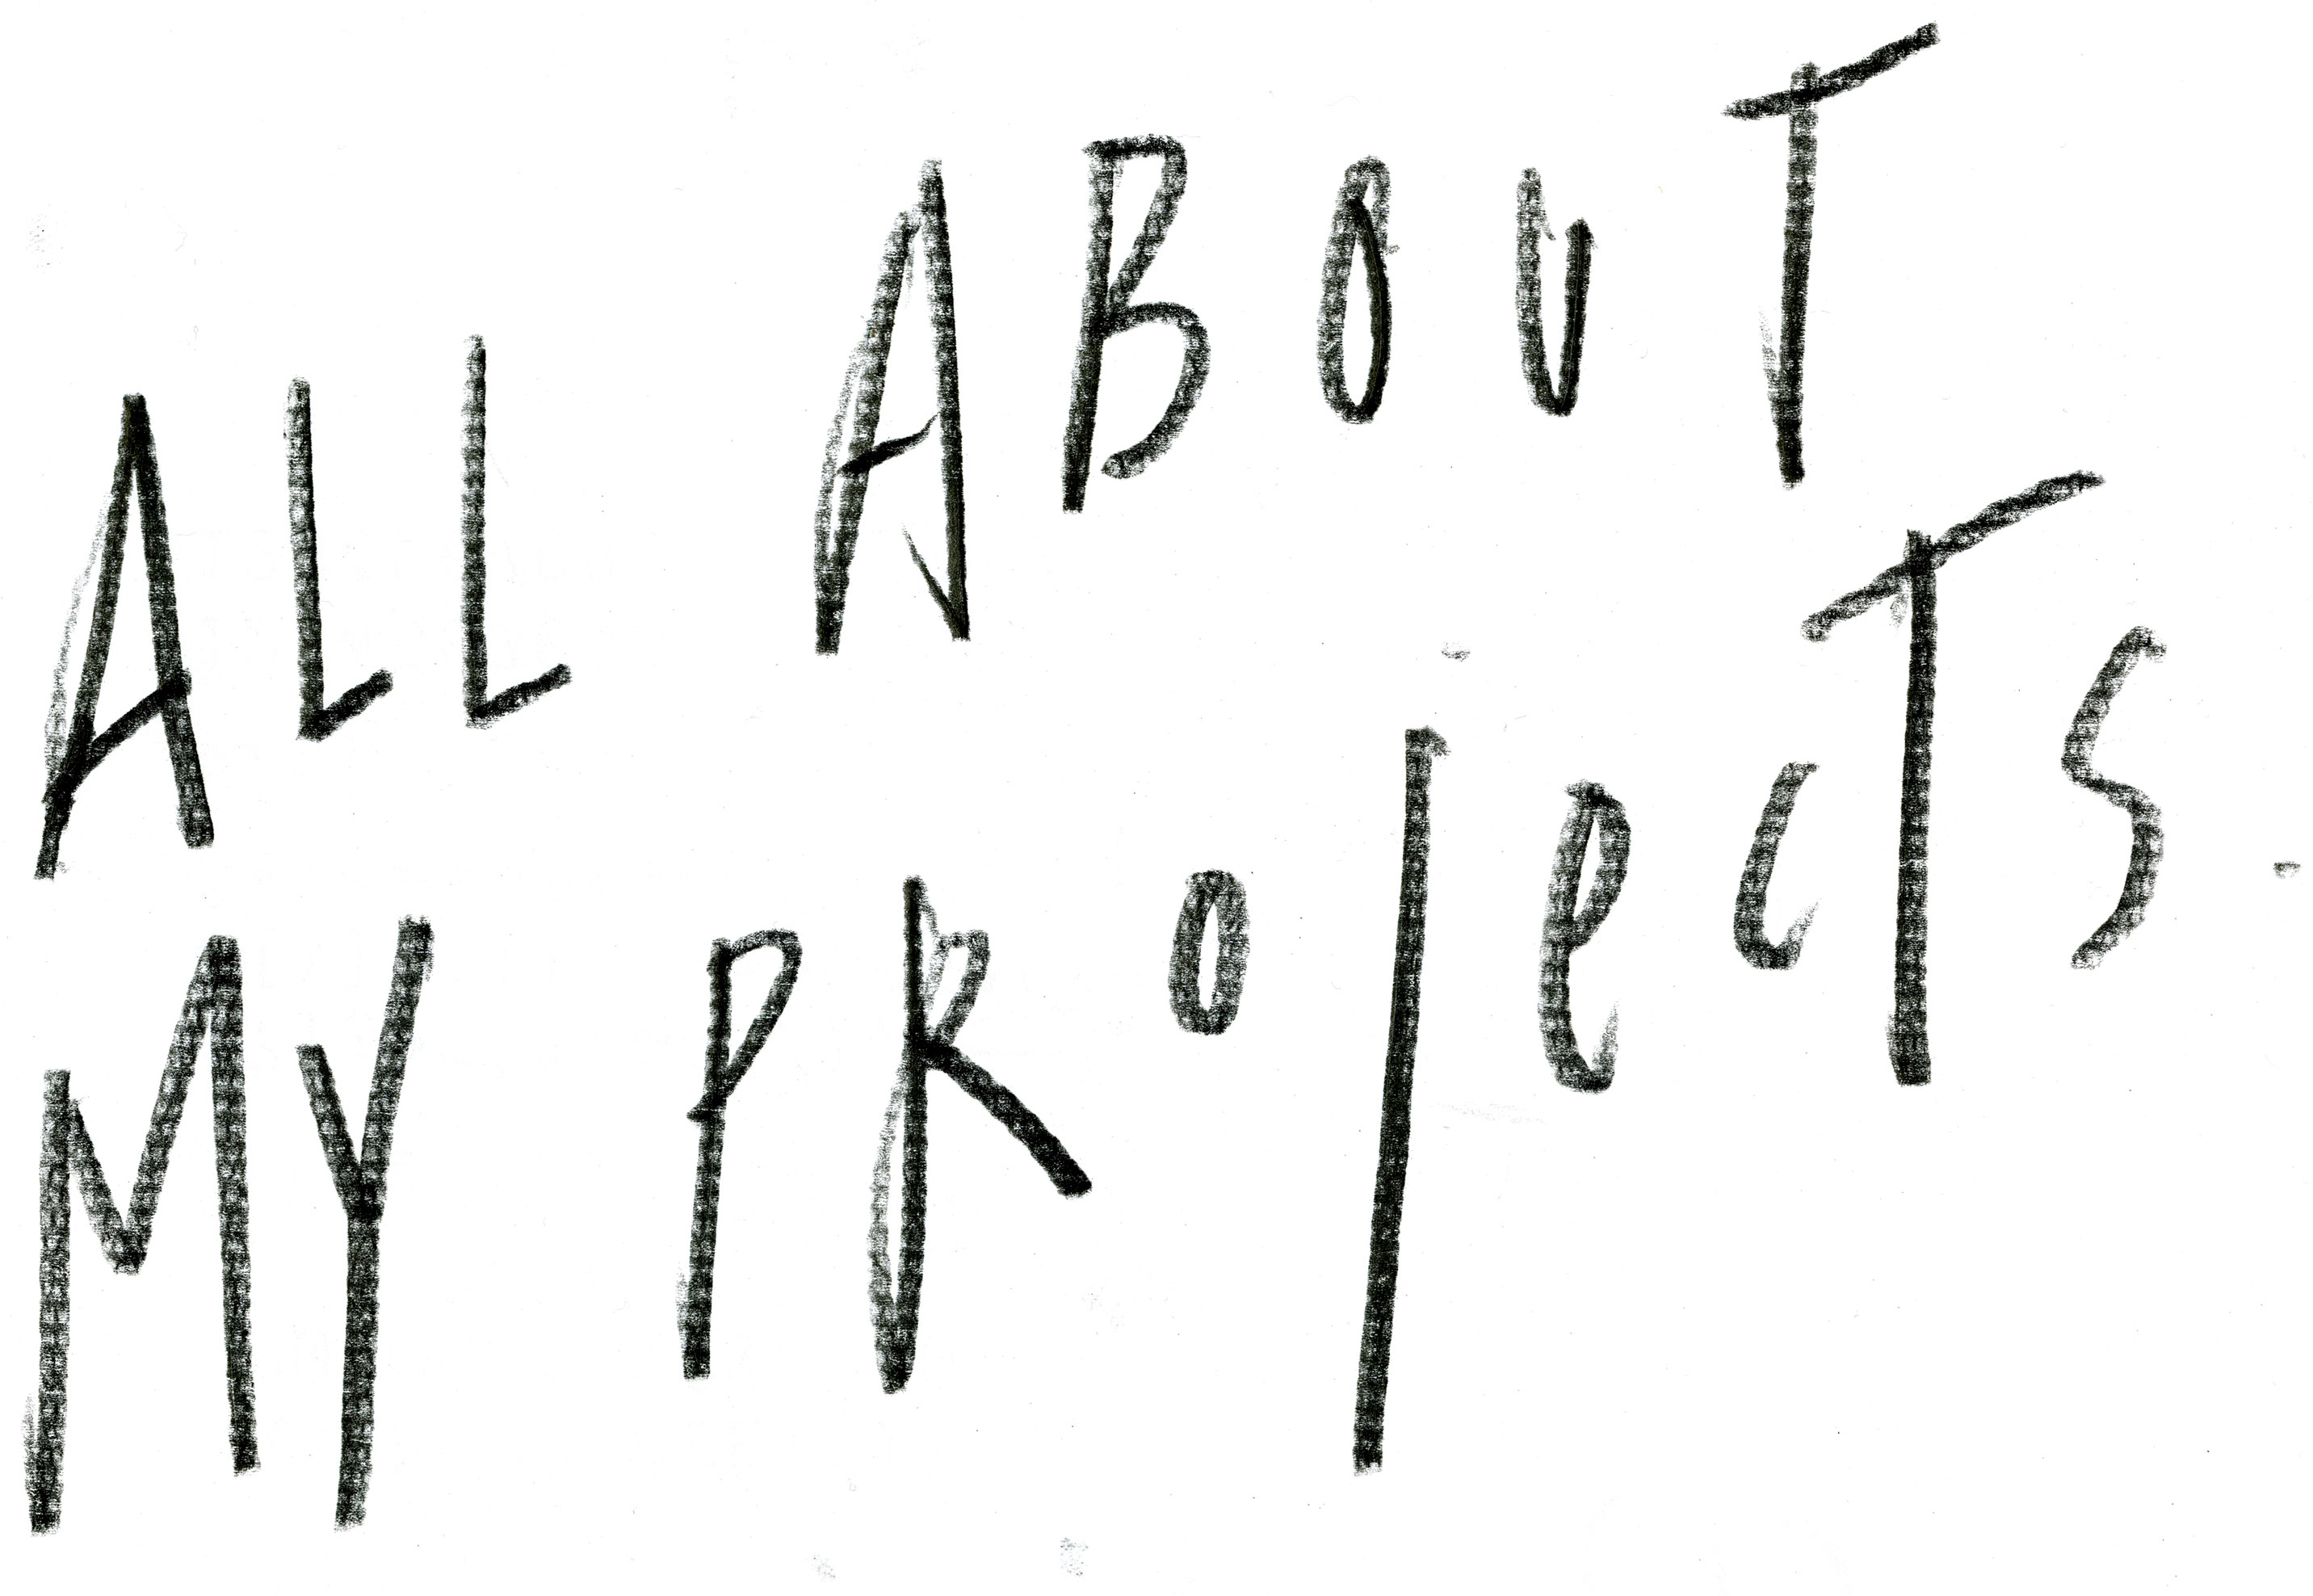 ALL ABouT
MY PRojecTs